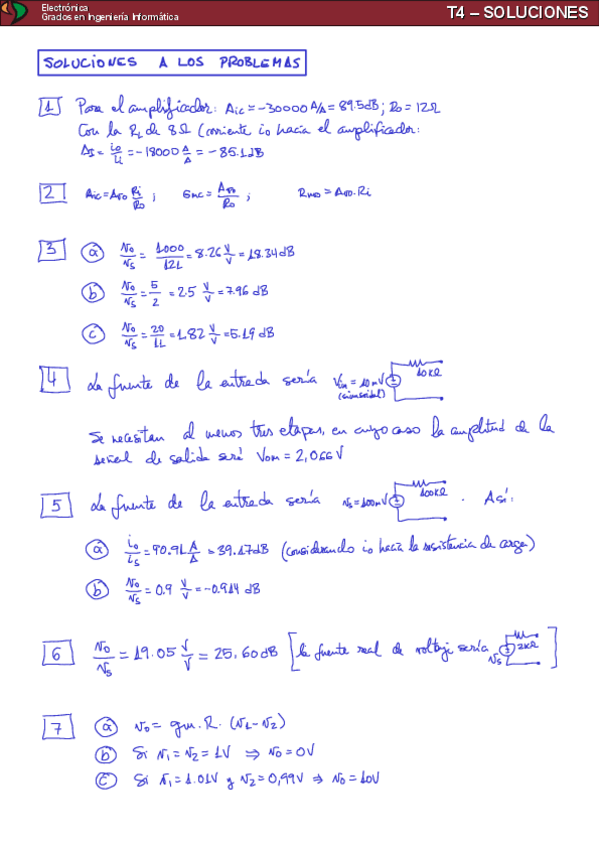 Electrónica
Grados en Ingeniería Informática
T4 – SOLUCIONES
SOLUCIONES A LOS PROBLEMAS
1 Para el amplificador: Aic = -30000 A/A = 89.5dB; Ro = 12Ω
Con la RL de 8Ω (corriente io hacia el amplificador:
AI = io/ii = -18000 A/A = -85.1dB
2 Aic = Avo Ri/Ro ; Gmc = Avo/Ro ; Rmo = Avo.Ri
3 a vo/vs = 1000/121 = 8.26 V/V = 18.34dB
b vo/vs = 5/2 = 2.5 V/V = 7.96 dB
c vo/vs = 20/11 = 1.82 V/V = 5.19 dB
4 La fuente de la entrada sería Vim = 10mV (sinusoidal) 10kΩ
Se necesitan al menos tres etapas, en cuyo caso la amplitud de la
señal de salida será Vom = 2,066V
5 La fuente de la entrada sería vs = 100mV 100kΩ . Así:
a io/is = 90.91 A/A = 39.17dB (considerando io hacia la resistencia de carga)
b vo/vs = 0.9 V/V = -0.914 dB
6 vo/vs = 19.05 V/V = 25.60dB [la fuente real de voltaje sería vs 2kΩ ]
7 a vo = gm.R.(v1-v2)
b Si v1 = v2 = 1V ⇒ vo = 0V
c Si v1 = 1.01V y v2 = 0,99V ⇒ vo = 10V